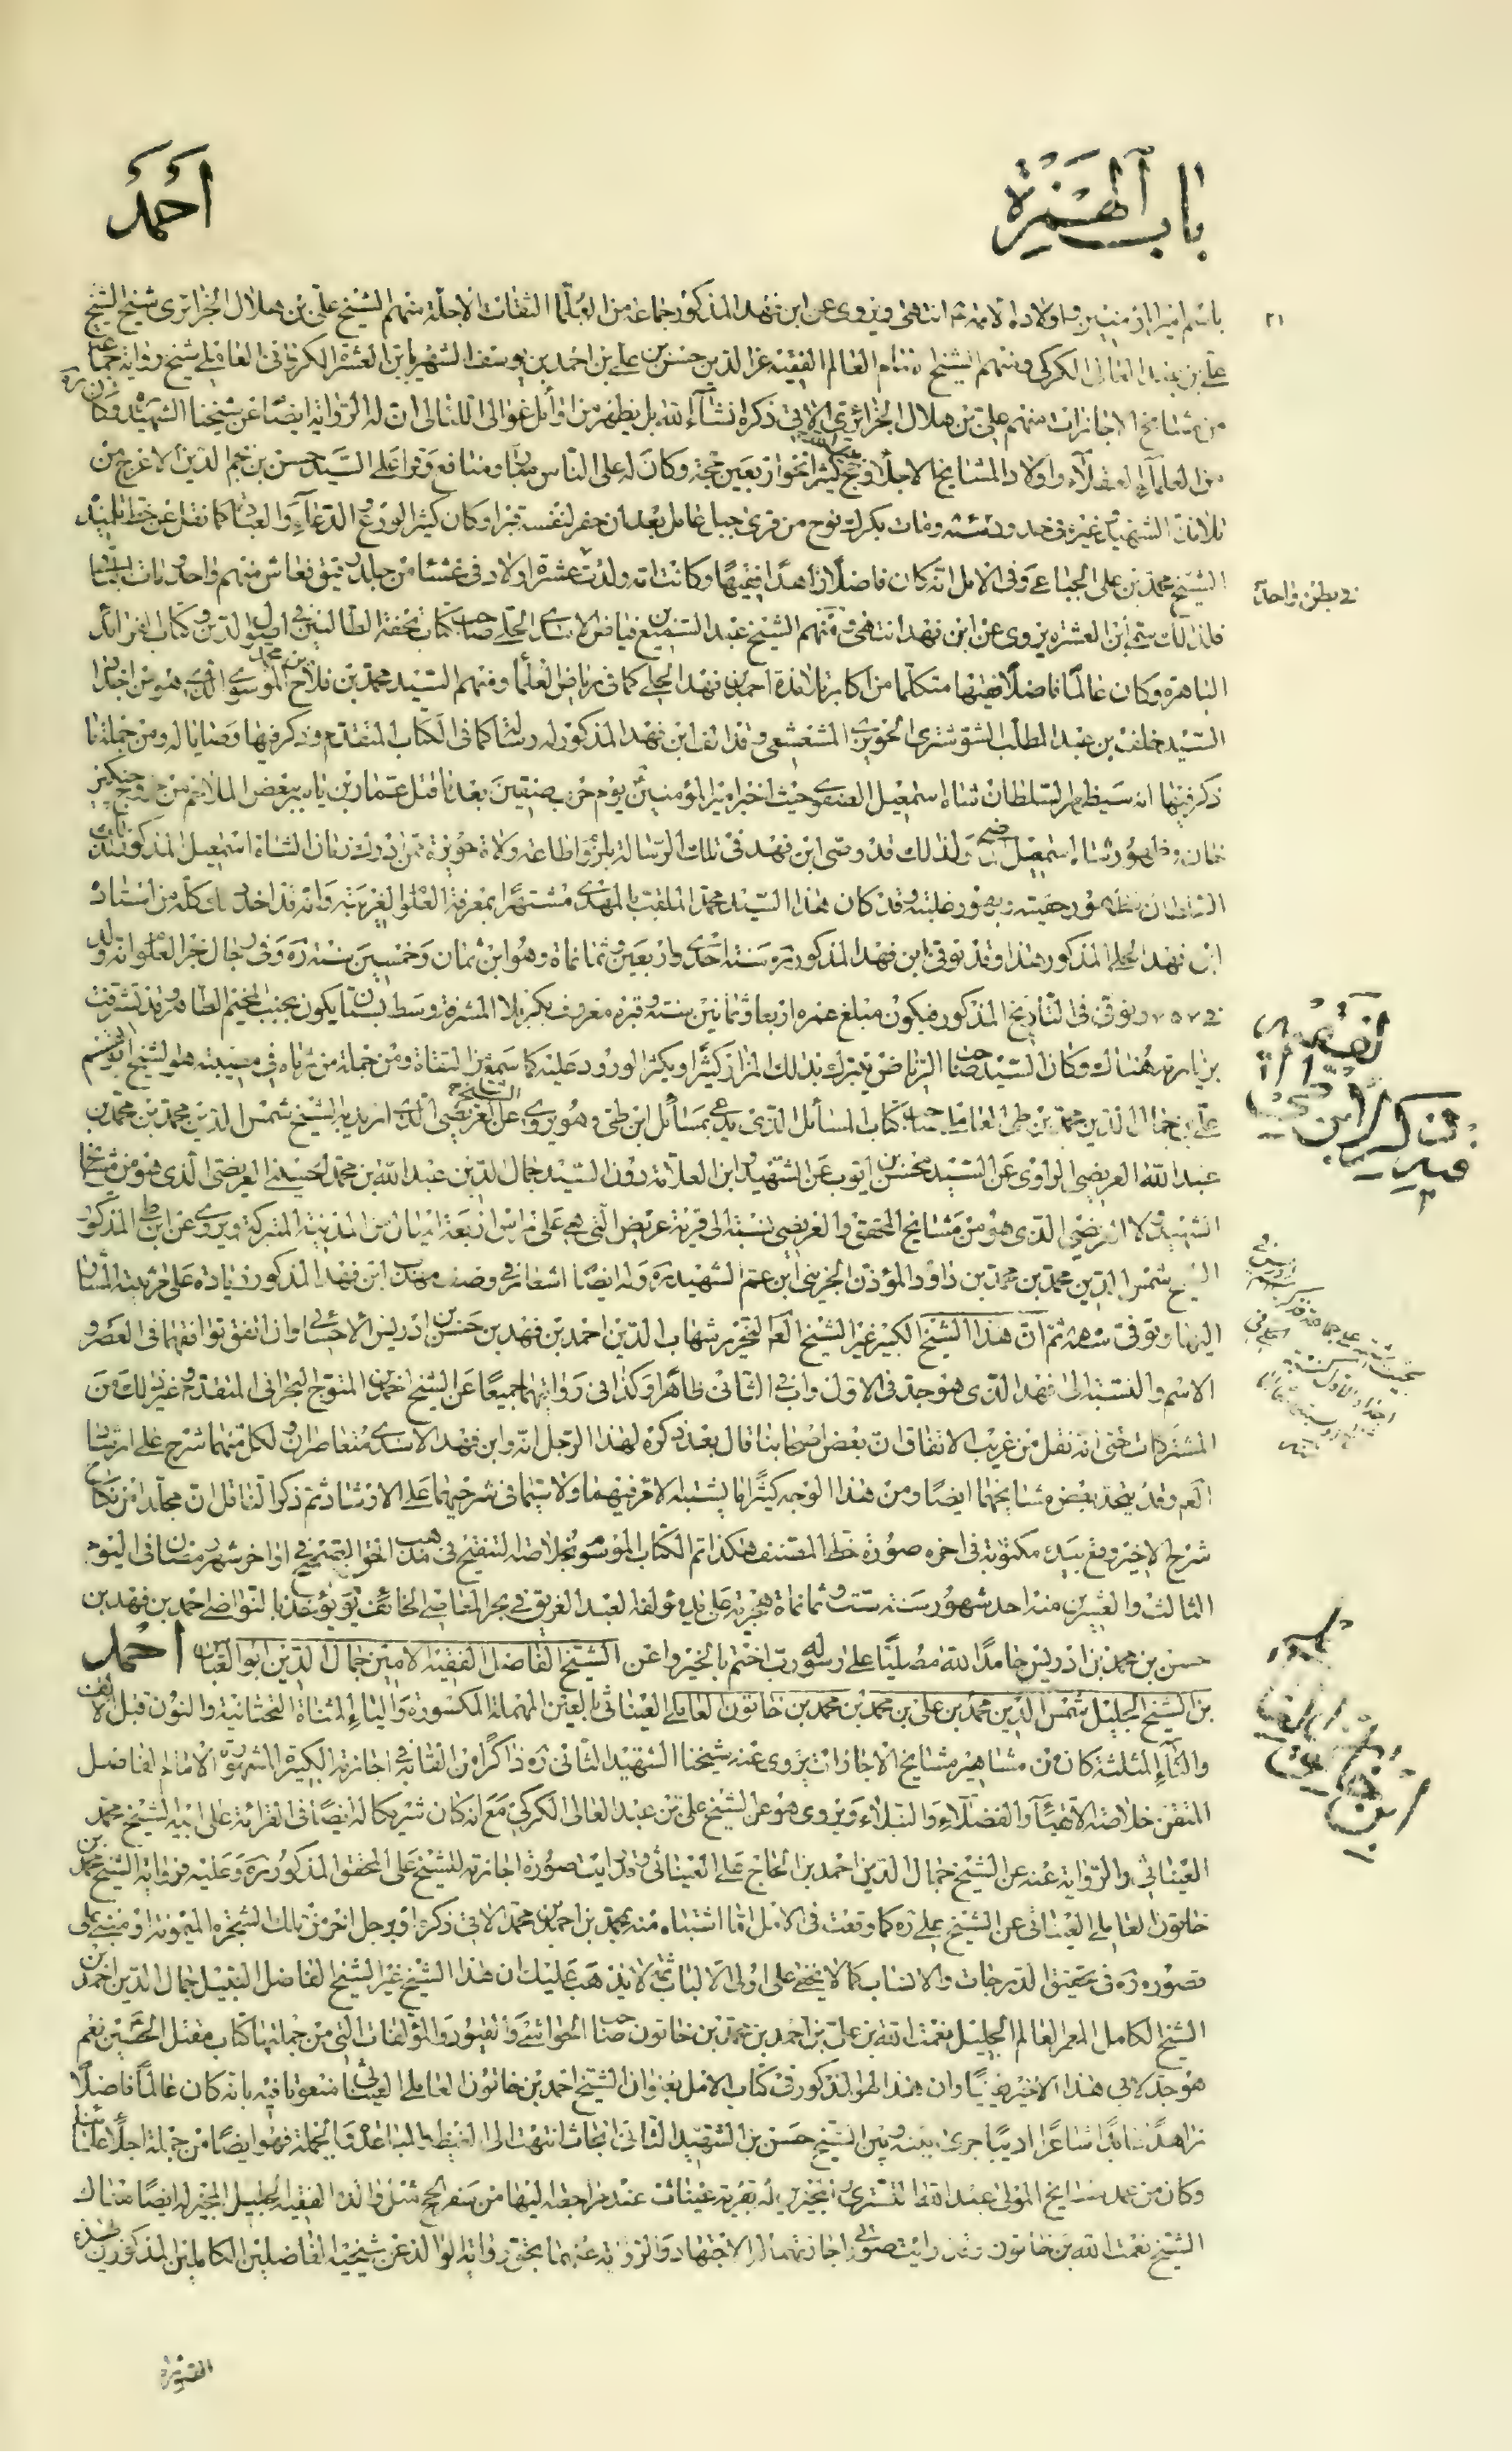 باب الهمزة
أحمد
٢١
باسم امير المؤمنين واولاده الائمة انتهى ويروى عن ابن فهد المذكور جماعة من العلماء الثقات الاجلة منهم الشيخ على بن هلال الجزائرى شيخ الشيخ
على بن عبد العالى الكركى ومنهم الشيخ الامام العالم الفقيه عز الدين حسن بن على بن احمد بن يوسف الشهير بابن العشرة الكروانى العاملى شيخ رواية جماعة
من مشايخ الاجازات منهم على بن هلال الجزائرى الاتى ذكره انشاء الله بل يظهر من اوائل غوالى اللئالى ان له الرواية ايضا عن شيخنا الشهيد ره وكان
من العلماء العقلاء واولاد المشايخ الاجلاء وحج كثيرا نحو اربعين حجة وكان له على الناس مبار ومنافع وقرا على السيد حسن بن نجم الدين الاعرج من
تلامذة الشهيد وغيره فى حدود سنة ومات بكرك نوح من قرى جبل عامل بعد ان حفر لنفسه قبرا وكان كثير الورع والدعاء والعبادة كما نقل عن خط تلميذه
الشيخ محمد بن على الجباعى وفى الامل انه كان فاضلا زاهدا فقيها وكانت امه ولدت عشرة اولاد فى غشاء من جلد رقيق فعاش منهم واحد ومات الباقى
فى بطن واحد
فلذلك سمى ابن العشرة يروى عن ابن فهد انتهى ومنهم الشيخ عبد السميع بن فياض الاسدى الحلى صاحب كتاب تحفة الطالبين فى اصول الدين وكتاب الفرائد
الباهرة وكان عالما فاضلا فقيها متكلما من اكابر تلامذة احمد بن فهد الحلى كما فى رياض العلماء ومنهم السيد محمد بن فلاح بن محمد الموسوى الذى هو من اجداد
السيد خلف بن عبد المطلب الشوشترى الحويزى المشعشعى وقد الف ابن فهد المذكور له رسالة كما فى الكتاب المتقدم وذكر فيها وصايا له ومن جملة ما
ذكر فيها انه سيظهر السلطان شاه اسمعيل الصفوى حيث اخبر امير المؤمنين يوم حرب صفين بعد ما قتل عمار بن ياسر ببعض الملاحم من خروج چنكيز
خان وظهور شاه اسمعيل ولذلك قد وصى ابن فهد فى تلك الرسالة بلزوم اطاعة ولاة حويزة ممن ادرك زمان الشاه اسمعيل المذكور لذلك
السلطان بظهور حقيته وبهور غلبته وقد كان هذا السيد محمد الملقب بالمهدى مشتهرا بمعرفة العلوم الغريبة وانه قد اخذ ذلك كله من استاده
ابن فهد الحلى المذكور هذا وقد توفى ابن فهد المذكور ره سنة احدى واربعين وثمانماة وهو ابن ثمان وخمسين سنة ره وفى رجال بحر العلوم انه ولد
فى ٧٥٧ وتوفى فى التاريخ المذكور فيكون مبلغ عمره اربعا وثمانين سنة وقبره معروف بكربلا المشرفة وسط بستان يكون بجنب المخيم الطاهر وقد تشرفت
بزيارته هناك وكان السيد صاحب الرياض يتبرك بذلك المزار كثيرا ويكثر الورود عليه كما سمع من الثقاة ومن جملة من رثاه فى مصيبته هو الشيخ ابو القسم
على بن جمال الدين محمد بن طى العاملى صاحب كتاب المسائل الذى يدعى بمسائل ابن طى وهو يروى عن الشيخ العريضى الذى اريد به الشيخ شمس الدين محمد بن محمد بن
عبد الله العريضى الراوى عن السيد محسن بن ايوب عن الشهيد وابن العلامة دون السيد جمال الدين بن عبد الله بن محمد الحسينى العريضى الذى هو من مشايخ
الشهيد ولا العريضى الذى هو من مشايخ المحقق والعريضى نسبة الى قرية عريض التى هى على راس اربعة اميال من المدينة المباركة ويروى عن ابن طى المذكور
الشيخ شمس الدين محمد بن محمد بن داود المؤذن الجزينى ابن عم الشهيد ره وله ايضا اشعار فى وصف مهذب ابن فهد المذكور زيادة على مرثيته المشار
اليها وتوفى سنة ثم ان هذا الشيخ الكبير غير الشيخ العالم النحرير شهاب الدين احمد بن فهد بن حسن بن ادريس الاحسائى وان اتفق توافقهما فى العصر و
الاسم والنسبة الى فهد الذى هو جد فى الاول واب فى الثانى ظاهرا وكذا فى روايتهما جميعا عن الشيخ احمد بن المتوج البحرانى المتقدم وغير ذلك من
المشتركات حتى انه نقل من غريب الاتفاق ان بعض اصحابنا قال بعد ذكره لهذا الرجل انه وابن فهد الاسدى متعاصران ولكل منهما شرح على ارشاد
العلامة وقد يتحد بعض مشايخهما ايضا ومن هذا الوجه كثيرا ما يشتبه الامر فيهما ولا سيما فى شرحيهما على الارشاد ثم ذكر الناقل ان مجلدا من كتاب
شرح الاخير وقع بيده مكتوبة فى اخره صورة خط المصنف هكذا تم الكتاب الموسوم بخلاصة التنقيح فى مذهب الحق الصحيح فى اواخر شهر رمضان فى اليوم
الثالث والعشرين منه احد شهور سنة ست وثمانماة هجرية على يد مؤلفه العبد الغريق فى بحر المعاصى الخائف يوم يؤخذ بالنواصى احمد بن فهد بن
حسن بن محمد بن ادريس حامدا لله مصليا على رسوله رب اختم بالخير واعن الشيخ الفاضل الفقيه الامين جمال الدين ابو العباس احمد
بن الشيخ الجليل شمس الدين محمد بن على بن محمد بن محمد بن خاتون العاملى العيناثى بالعين المهملة المكسورة والياء المثناة التحتانية والنون قبل الالف
والثاء المثلثة كان من مشاهير مشايخ الاجازات يروى عنه شيخنا الشهيد الثانى ره ذاكرا من القابه فى اجازته الكبيرة المشهورة الامام الفاضل
المتقن خلاصة الاتقياء والفضلاء والنبلاء ويروى هو عن الشيخ على بن عبد العالى الكركى مع انه كان شريكا له ايضا فى القرائة على ابيه الشيخ محمد
العيناثى والرواية عنه عن الشيخ جمال الدين احمد بن الحاج على العيناثى وقد رايت صورة اجازته للشيخ على المحقق المذكور ره وعليه فرواية الشيخ محمد بن
خاتون العاملى العيناثى عن الشيخ على ره كما وقعت فى الامل اما اشتباه منه بمحمد بن احمد بن محمد الاتى ذكره او برجل اخر من تلك الشجرة الميمونة او مبنى على
قصوره ره فى تحقيق الدرجات والانساب كما لا يخفى على اولى الالباب ثم لا يذهب عليك ان هذا الشيخ غير الشيخ الفاضل النبيل جمال الدين احمد بن
الشيخ الكامل المعمر العالم الجليل نعمت الله بن على بن احمد بن محمد بن خاتون صاحب الحواشى والقيود والمؤلفات التى من جملتها كتاب مقتل الحسين نعم
هو جد لابى هذا الاخير يقينا وان هذا هو المذكور فى كتاب الامل بعنوان الشيخ احمد بن خاتون العاملى العيناثى منعوتا فيه بانه كان عالما فاضلا
زاهدا عابدا شاعرا اديبا جرى بينه وبين الشيخ حسن بن الشهيد الثانى ابحاث انتهت الى الغيظ والمباعدة وبالجملة فهو ايضا من جملة اجلاء علمائنا
وكان من عمد مشايخ المولى عبد الله التسترى المجيزين له بقرية عيناث عند مراجعته اليها من سفر الحج مثل والده الفقيه الجليل المجيز له ايضا هناك
الشيخ نعمت الله بن خاتون وقد رايت صورتى اجازتهما له الاجتهاد والرواية عنهما بحق رواية الوالد عن شيخيه الفاضلين الكاملين المذكورين